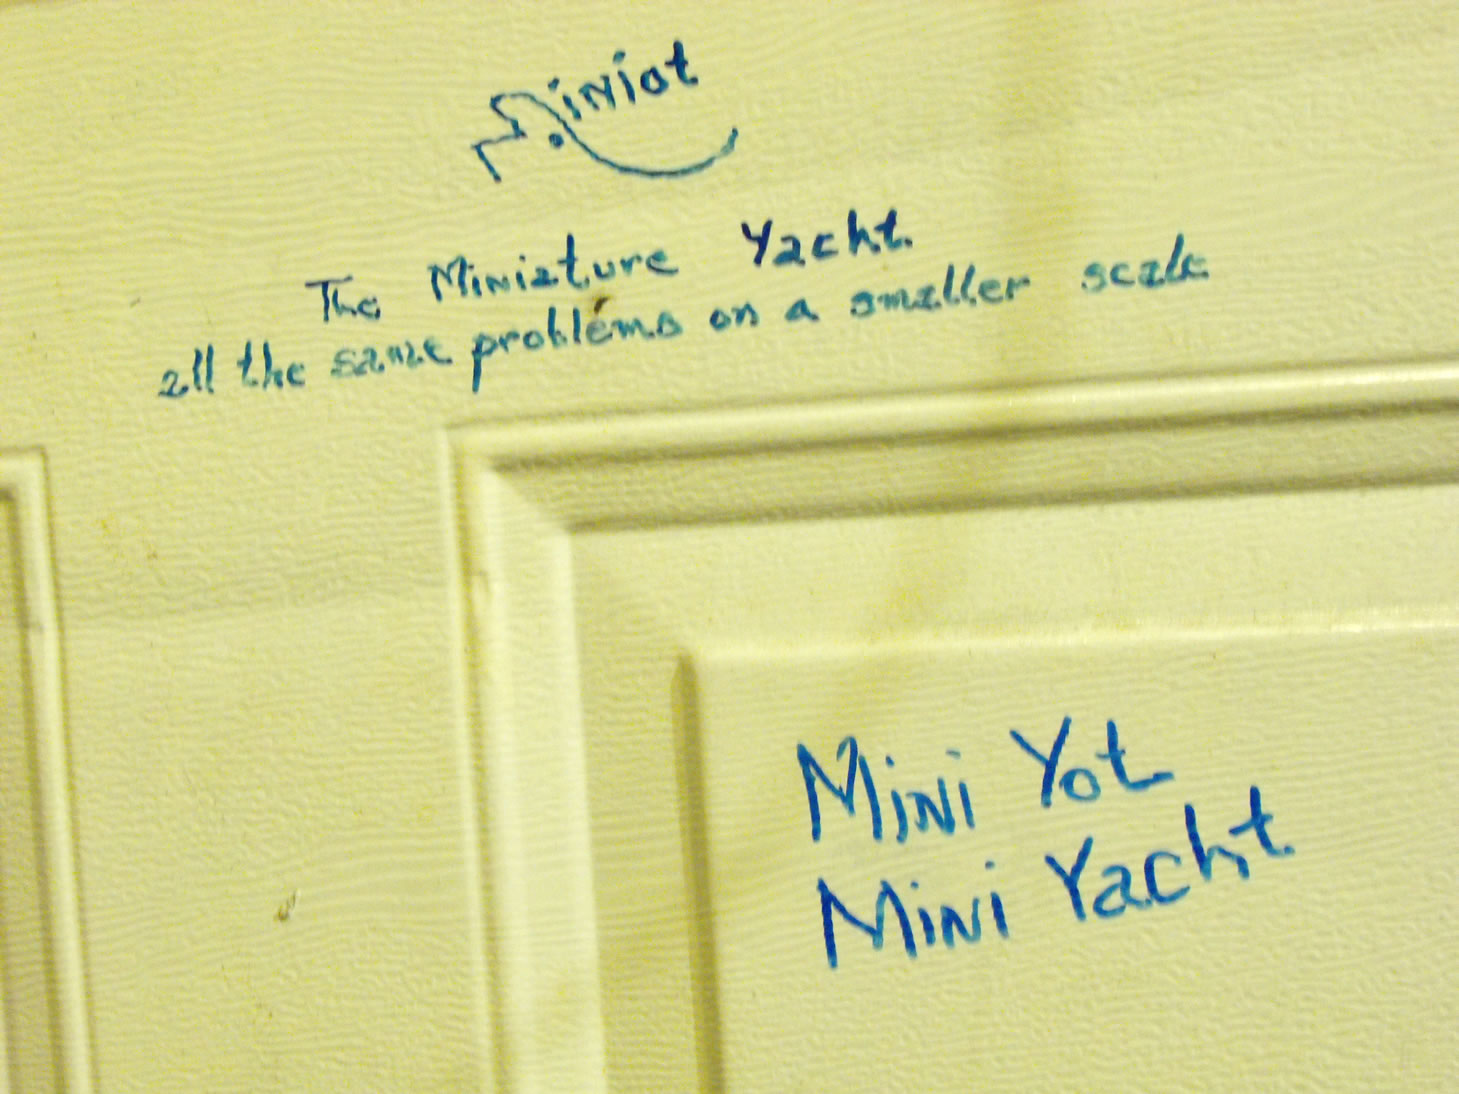 Miniot
The Miniature Yacht.
all the same problems on a smaller scale
Mini Yot
Mini Yacht